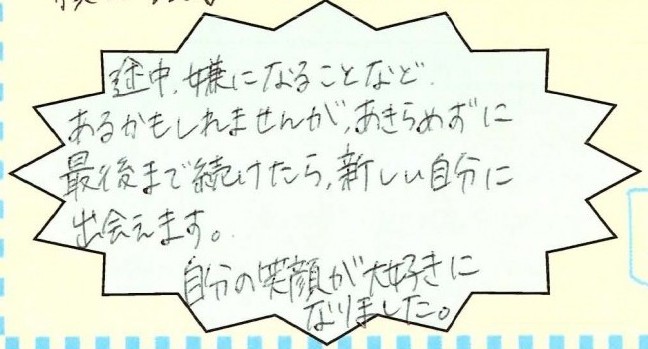 途中、嫌になることなど
あるかもしれませんが、あきらめずに
最後まで続けたら、新しい自分に
出会えます。
自分の笑顔が大好きに
なりました。